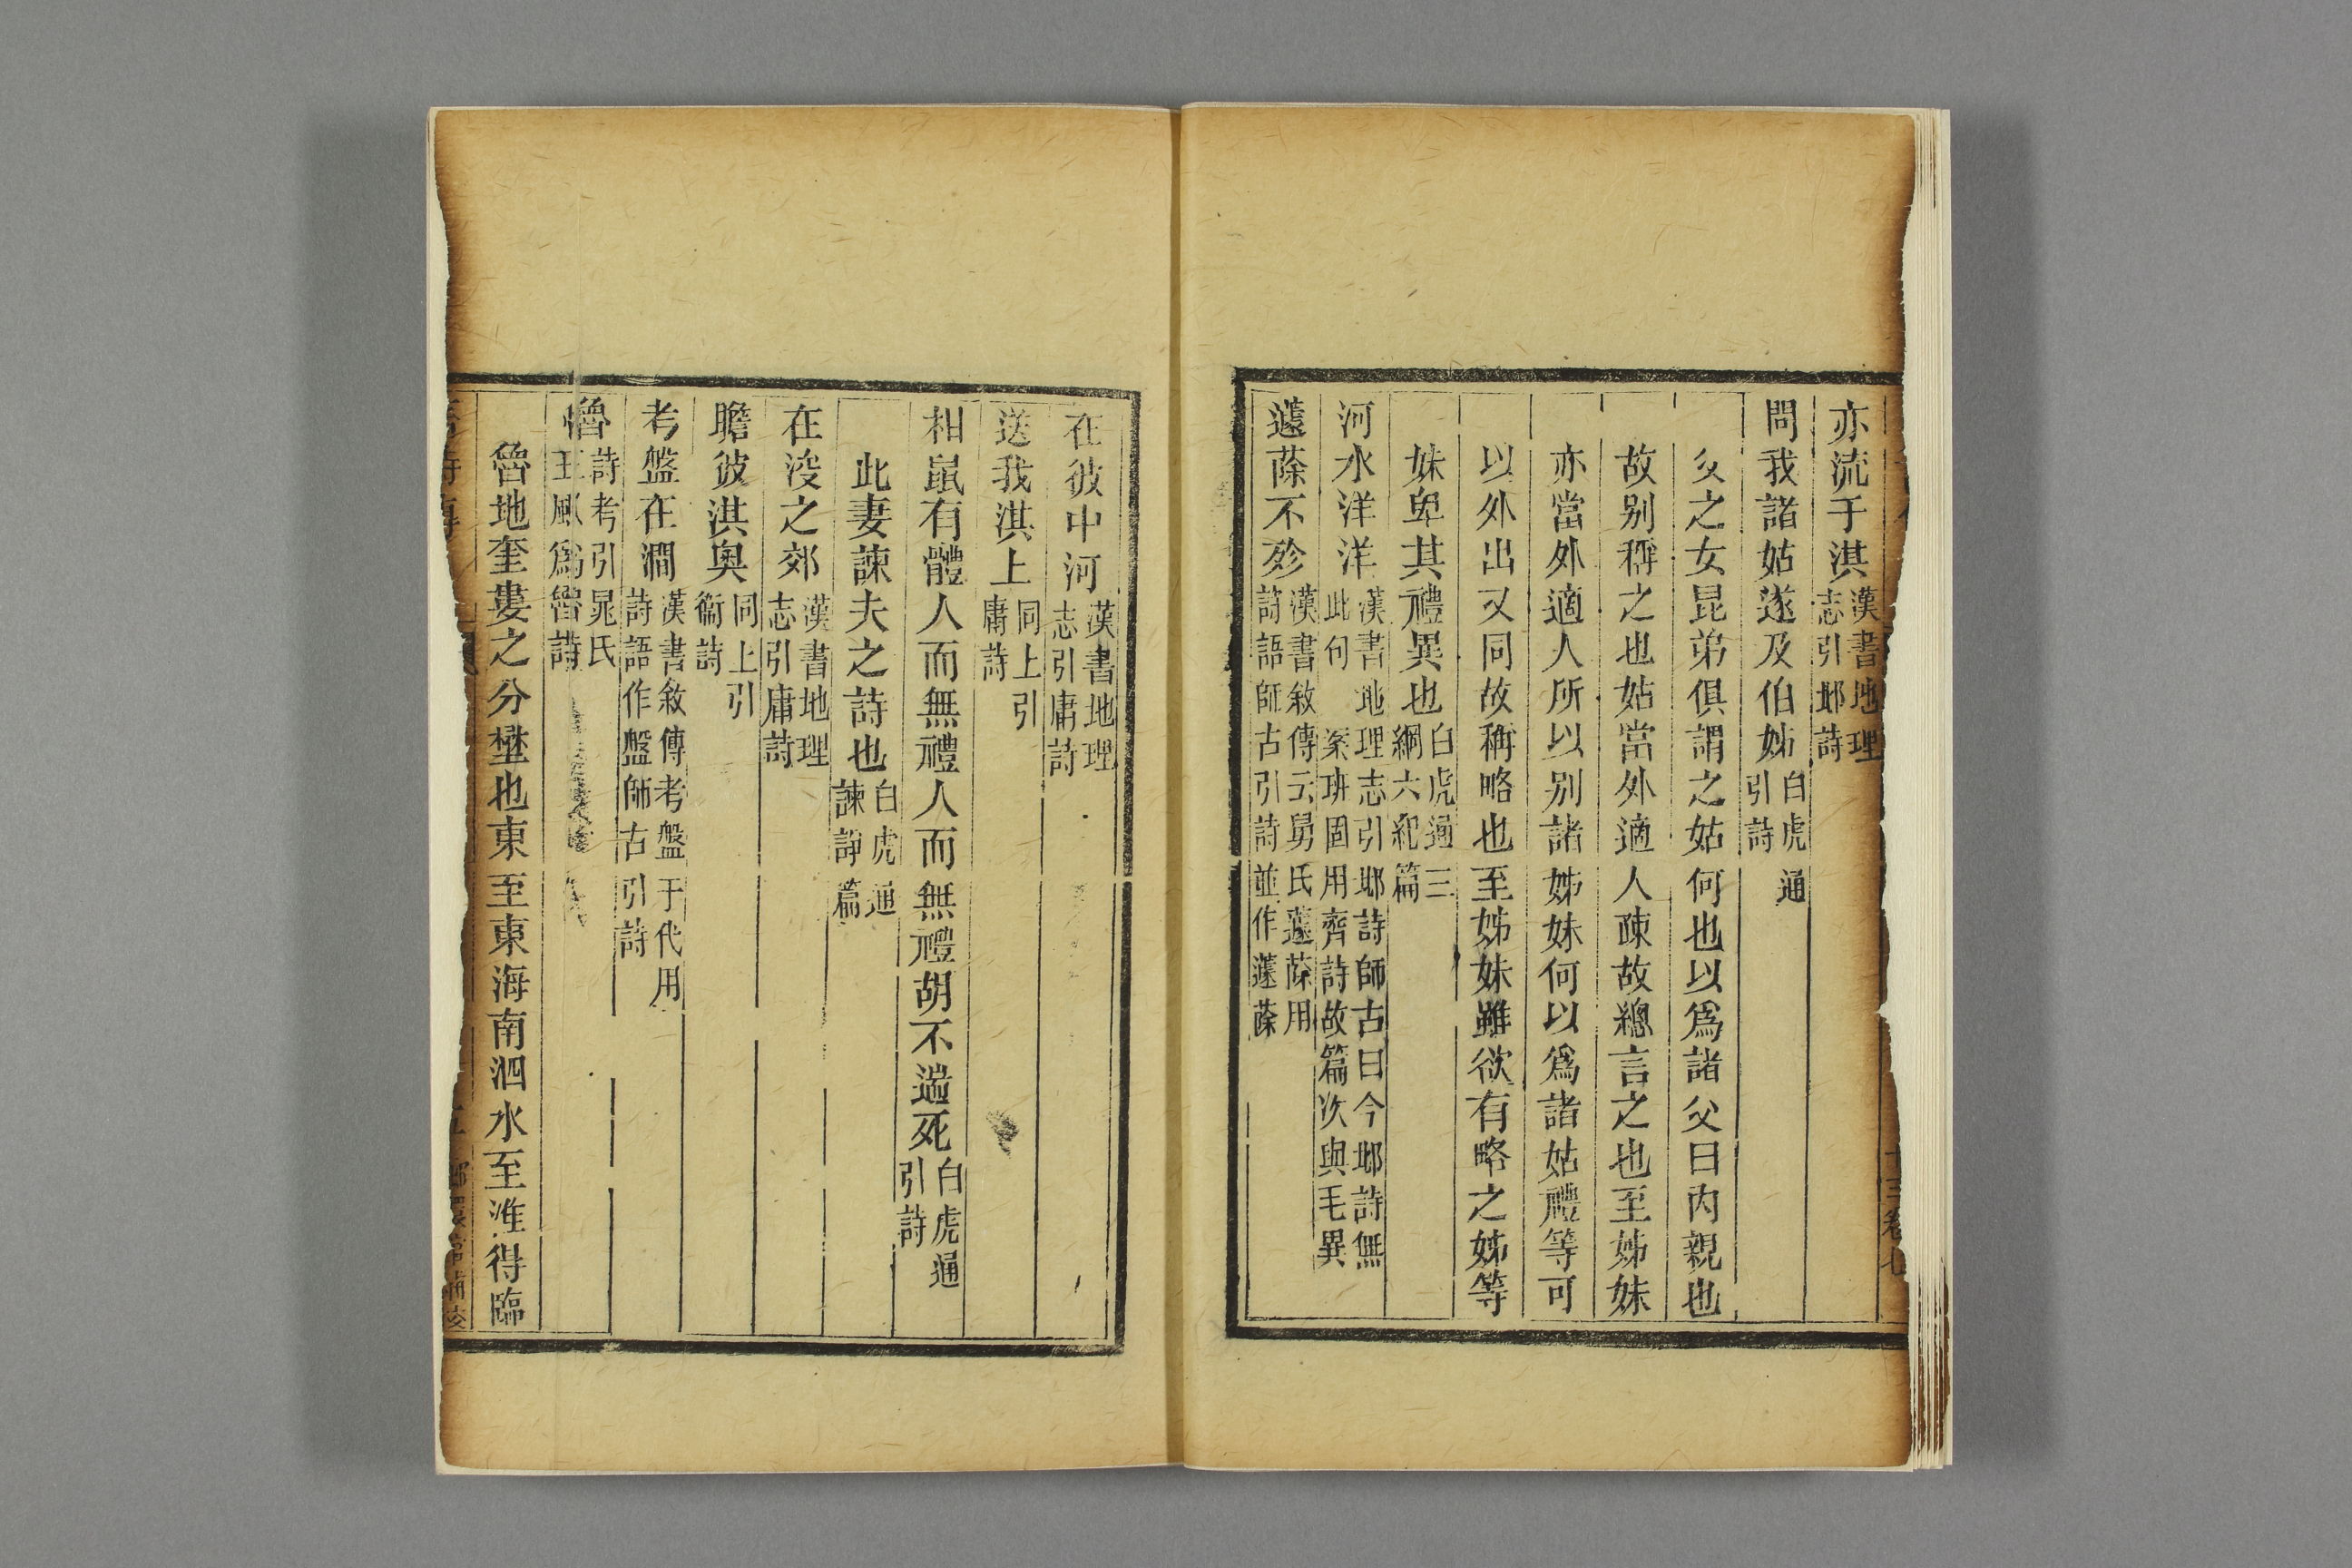 亦流于淇漢書地理志引邶詩
問我諸姑遂及伯姊白虎通引詩
父之女昆弟俱謂之姑何也以爲諸父曰内親也
故别稱之也姑當外適人疎故總言之也至姊妹
亦當外適人所以别諸姊妹何以爲諸姑禮等可
以外出又同故稱略也至姊妹雖欲有略之姊等
妹卑其禮異也白虎通三綱六紀篇
河水洋洋漢書地理志引邶詩師古曰今邶詩無此句 案班固用齊詩故篇次與毛異
蘧蒢不殄漢書敘傳云舅氏蘧蒢用詩語師古引詩並作蘧蒢
在彼中河漢書地理志引庸詩
送我淇上同上引庸詩
相鼠有體人而無禮人而無禮胡不遄死白虎通引詩
此妻諫夫之詩也白虎通諫諍篇
在浚之郊漢書地理志引庸詩
瞻彼淇奥同上引衞詩
考盤在澗漢書敘傳考盤于代用詩語作盤師古引詩
魯詩考引晁氏王風爲魯詩
魯地奎婁之分壄也東至東海南泗水至淮得臨